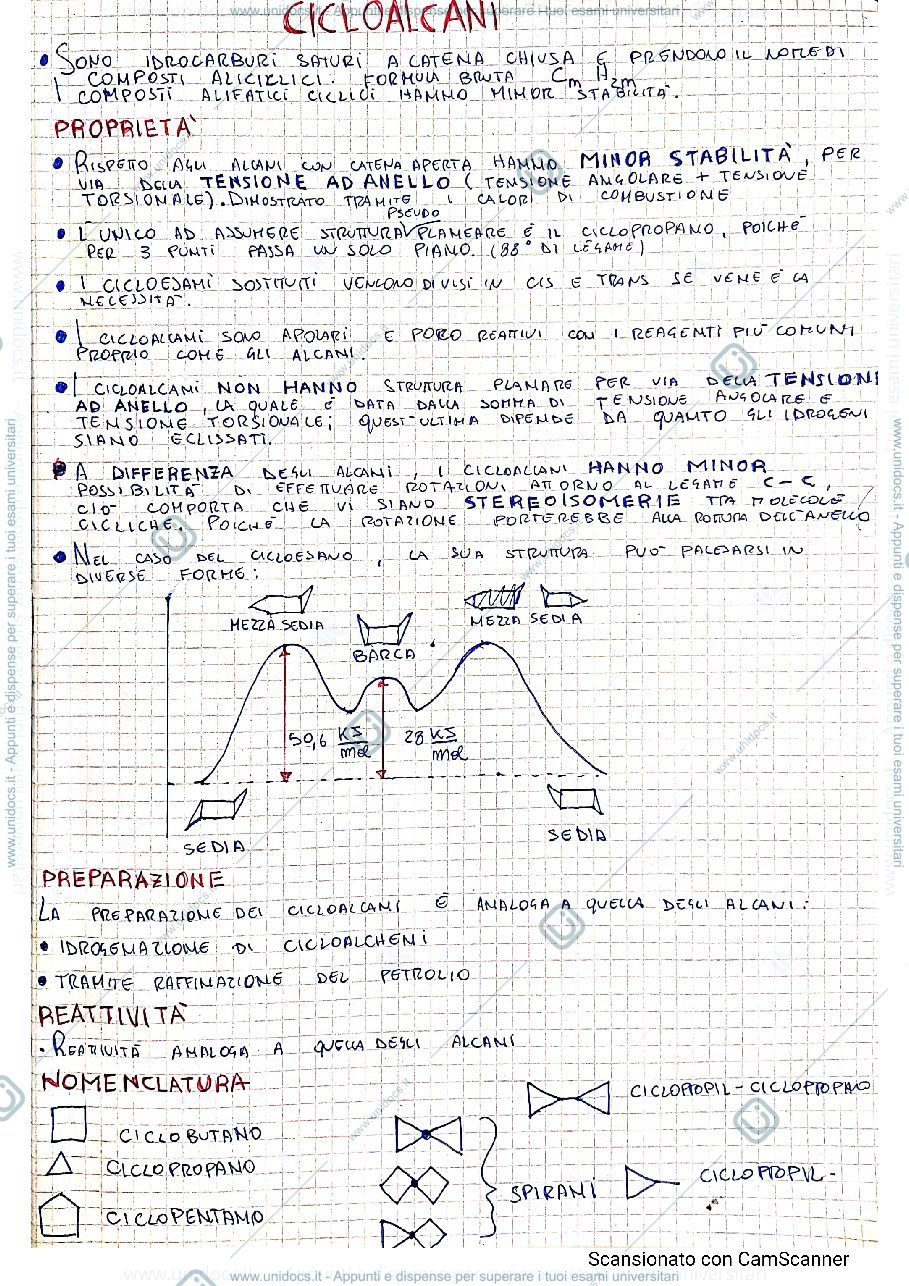 CICLOALCANI
• SONO IDROCARBURI SATURI A CATENA CHIUSA E PRENDONO IL NOME DI
COMPOSTI ALICICLICI. FORMULA BRUTA CnH2n
I COMPOSTI ALIFATICI CICLICI HANNO MINOR STABILITÀ.
PROPRIETÀ
• RISPETTO AGLI ALCANI CON CATENA APERTA HANNO MINOR STABILITÀ, PER
VIA DELLA TENSIONE AD ANELLO (TENSIONE ANGOLARE + TENSIONE
TORSIONALE). DIMOSTRATO TRAMITE I CALORI DI COMBUSTIONE
PSEUDO
• L'UNICO AD ASSUMERE STRUTTURA PLANEARE È IL CICLOPROPANO, POICHÈ
PER 3 PUNTI PASSA UN SOLO PIANO. (88° DI LEGAME)
• I CICLOESANI SOSTITUITI VENGONO DIVISI IN CIS E TRANS SE VE NE È LA
NECESSITÀ.
• I CICLOALCANI SONO APOLARI E POCO REATIVI CON I REAGENTI PIÙ COMUNI
PROPRIO COME GLI ALCANI.
• I CICLOALCANI NON HANNO STRUTTURA PLANARE PER VIA DELLA TENSIONI
AD ANELLO, LA QUALE È DATA DALLA SOMMA DI TENSIONE ANGOLARE E
TENSIONE TORSIONALE; QUEST'ULTIMA DIPENDE DA QUANTO GLI IDROGENI
SIANO ECLISSATI.
• A DIFFERENZA DEGLI ALCANI, I CICLOALCANI HANNO MINOR
POSSIBILITÀ DI EFFETTUARE ROTAZIONI ATTORNO AL LEGAME C-C,
CIÒ COMPORTA CHE VI SIANO STEREOISOMERIE TRA MOLECOLE
CICLICHE. POICHÈ LA ROTAZIONE PORTEREBBE ALLA ROTTURA DELL'ANELLO
• NEL CASO DEL CICLOESANO, LA SUA STRUTTURA PUÒ PALESARSI IN
DIVERSE FORME:
MEZZA SEDIA
BARCA
MEZZA SEDIA
50,6 KJ/mol
28 KJ/mol
SEDIA
SEDIA
PREPARAZIONE
LA PREPARAZIONE DEI CICLOALCANI È ANALOGA A QUELLA DEGLI ALCANI:
• IDROGENAZIONE DI CICLOALCHENI
• TRAMITE RAFFINAZIONE DEL PETROLIO
REATTIVITÀ
• REATIVITÀ ANALOGA A QUELLA DEGLI ALCANI
NOMENCLATURA
CICLOPROPIL-CICLOPROPANO
CICLOBUTANO
CICLOPROPANO
SPIRANI
CICLOPROPIL-
CICLOPENTANO
Scansionato con CamScanner
www.unidocs.it - Appunti e dispense per superare i tuoi esami universitari